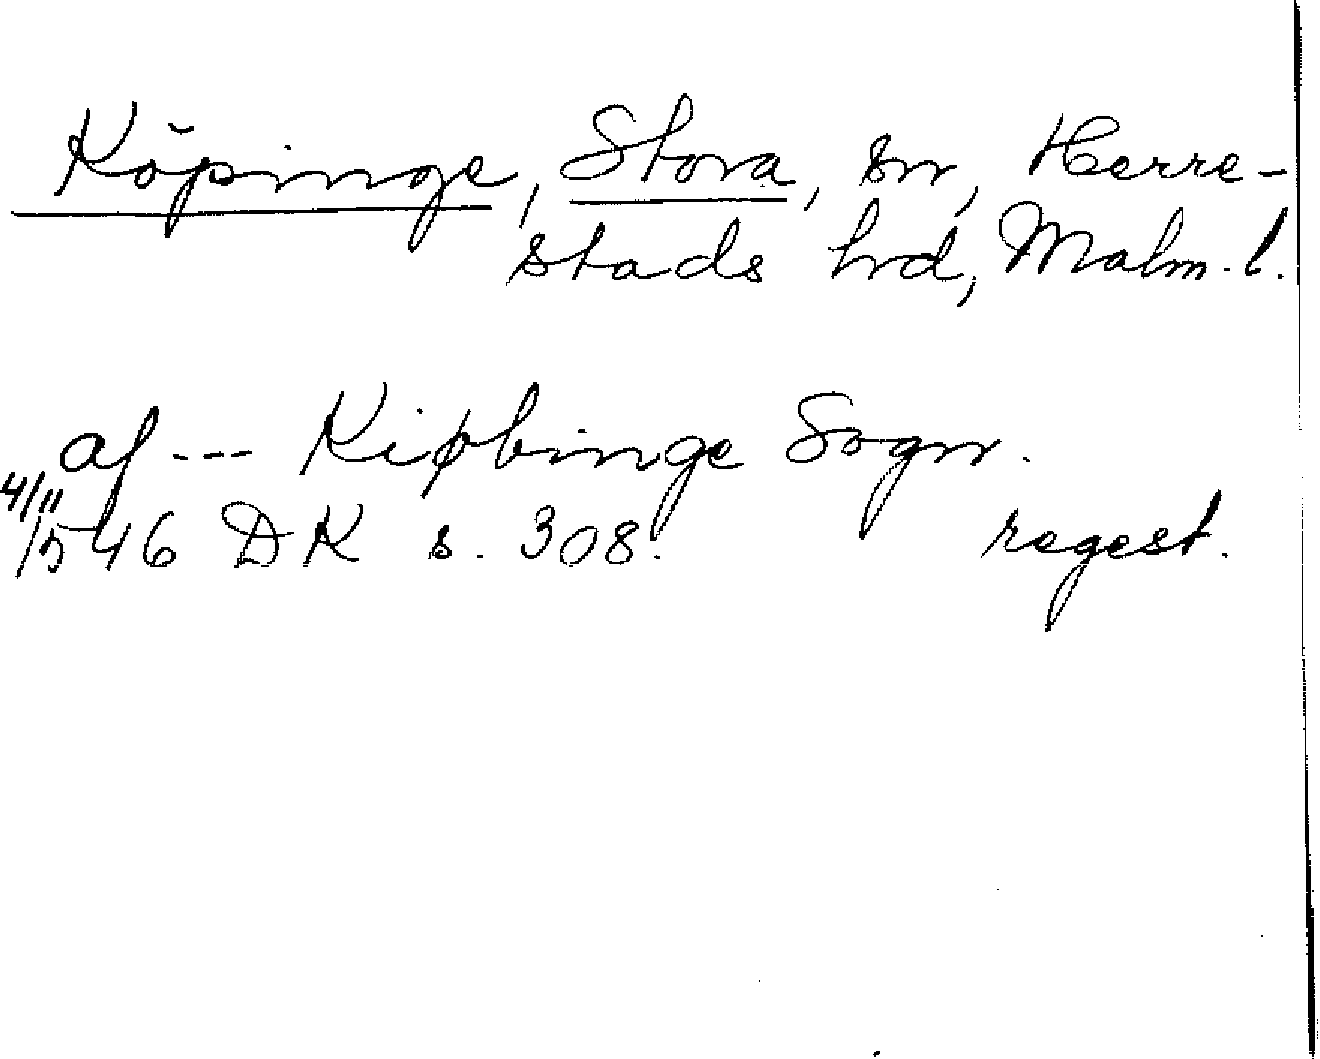 Köpinge, Stora, sn, Herre-
stads hd, Malm. l.
af --- Kiøbinge Sogn.
4/11
1546 DK s. 308. regest.